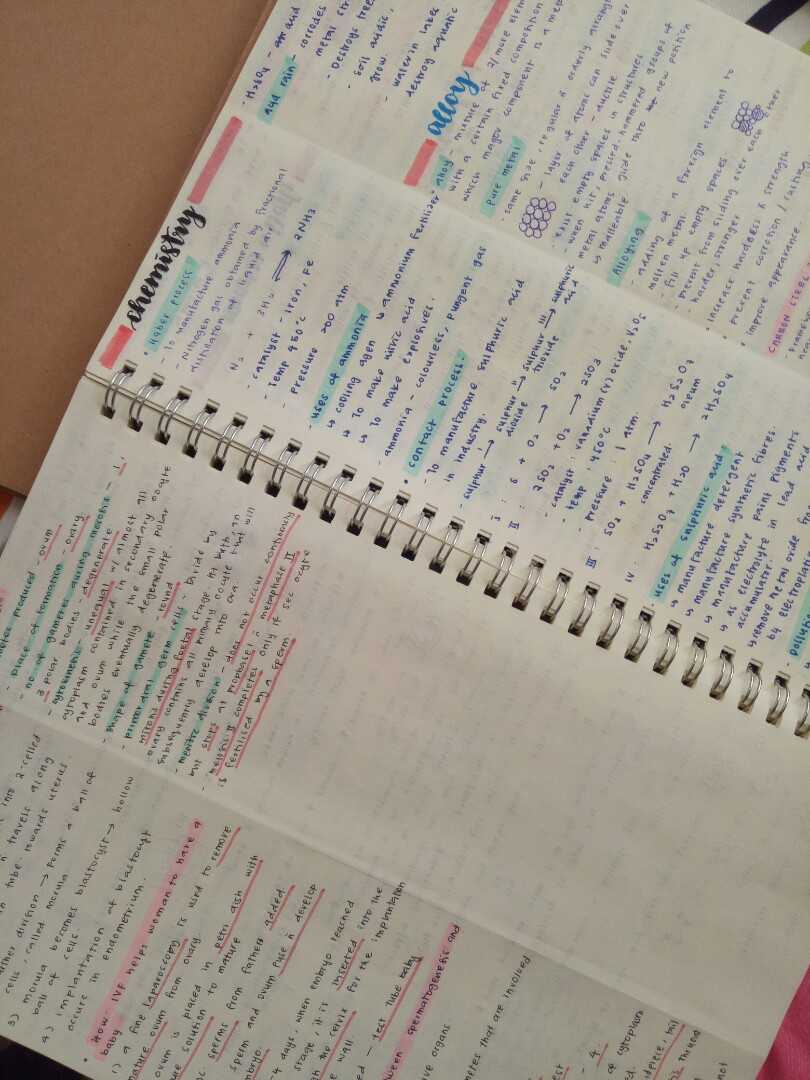 chemistry
• Haber process
- To manufacture ammonia
- Nitrogen gas obtained by fractional
distillation of liquid air
N2 + 3H2 ⇌ 2NH3
- catalyst - iron, Fe
- Temp 450°C
- pressure 200 atm
- uses of ammonia
↳ cooling agen ↳ ammonium fertilizer
↳ To make nitric acid
↳ To make explosives.
- ammonia - colourless, pungent gas
• contact process.
- To manufacture sulphuric acid
in industry.
sulphur →I sulphur dioxide →II sulphur trioxide →III sulphuric acid
I : S + O2 → SO2
II : 2SO2 + O2 → 2SO3
- catalyst : vanadium (V) oxide, V2O5
- temp : 450°C
- pressure : 1 atm.
III : SO2 + H2SO4 → H2S2O7
concentrated. oleum
IV : H2S2O7 + H2O → 2H2SO4
• uses of sulphuric acid
↳ manufacture detergent
↳ manufacture synthetic fibres.
↳ manufacture paint pigments
↳ as electrolyte in lead acid
accumulator.
↳ remove metal oxide
by electroplating
- H2SO4 -
acid rain - corrodes
metal
- Destroys trees
- soil acidic,
grow.
- water in lakes
destroy aquatic
alloy
• alloy - mixture of 2/more
with a certain fixed composition
which major component is a
pure metal
same size, regular & orderly
- layer of atoms can slide over
each other - ductile
- exist empty spaces in structures
- when hit, pressed, hammered groups of
metal atoms glide into new position
↳ malleable
Alloying
- adding of a foreign element to
molten metal.
- fill up empty spaces.
- prevent from sliding over each other
- harder, stronger
• increase hardness & strength
• prevent corrosion / rusting
• improve appearance.
CARBON STEEL
produced - ovum
- place of formation - ovary.
- no. of gametes during meiosis - 1,
3 polar bodies - degenerate
- cytokinesis - unequal w/ almost all
cytoplasm contained in secondary oocyte
and ovum while the small polar
bodies eventually degenerate.
- shape of gamete - round
- primordial germ cells - Divide by
mitosis during foetal stage. At birth, an
ovary contains all primary oocyte that will
subsequently develop into ova
- meiotic division - does not occur continously
but stops at prophase I & metaphase II
- meiosis II completes only if sec oocyte
is fertilised by a sperm
into 2-celled
travels along
tube towards uterus
division → forms a ball of
cells, called morula
3) morula becomes blastocyst → hollow
ball of cells.
4) implantation of blastocyst
occurs in endometrium.
• How IVF helps woman to have a
baby
1) a fine laparoscopy is used to remove
mature ovum from ovary.
ovum is placed in petri dish with
solution to mature
sperms from father added.
sperm and ovum fuse & develop
embryo.
4 days, when embryo reached
stage, it is inserted into the
the cervix for the implantation
wall.
- test tube baby
spermatogenesis and
organs
that are involved
- 4.
of cytoplasm
not